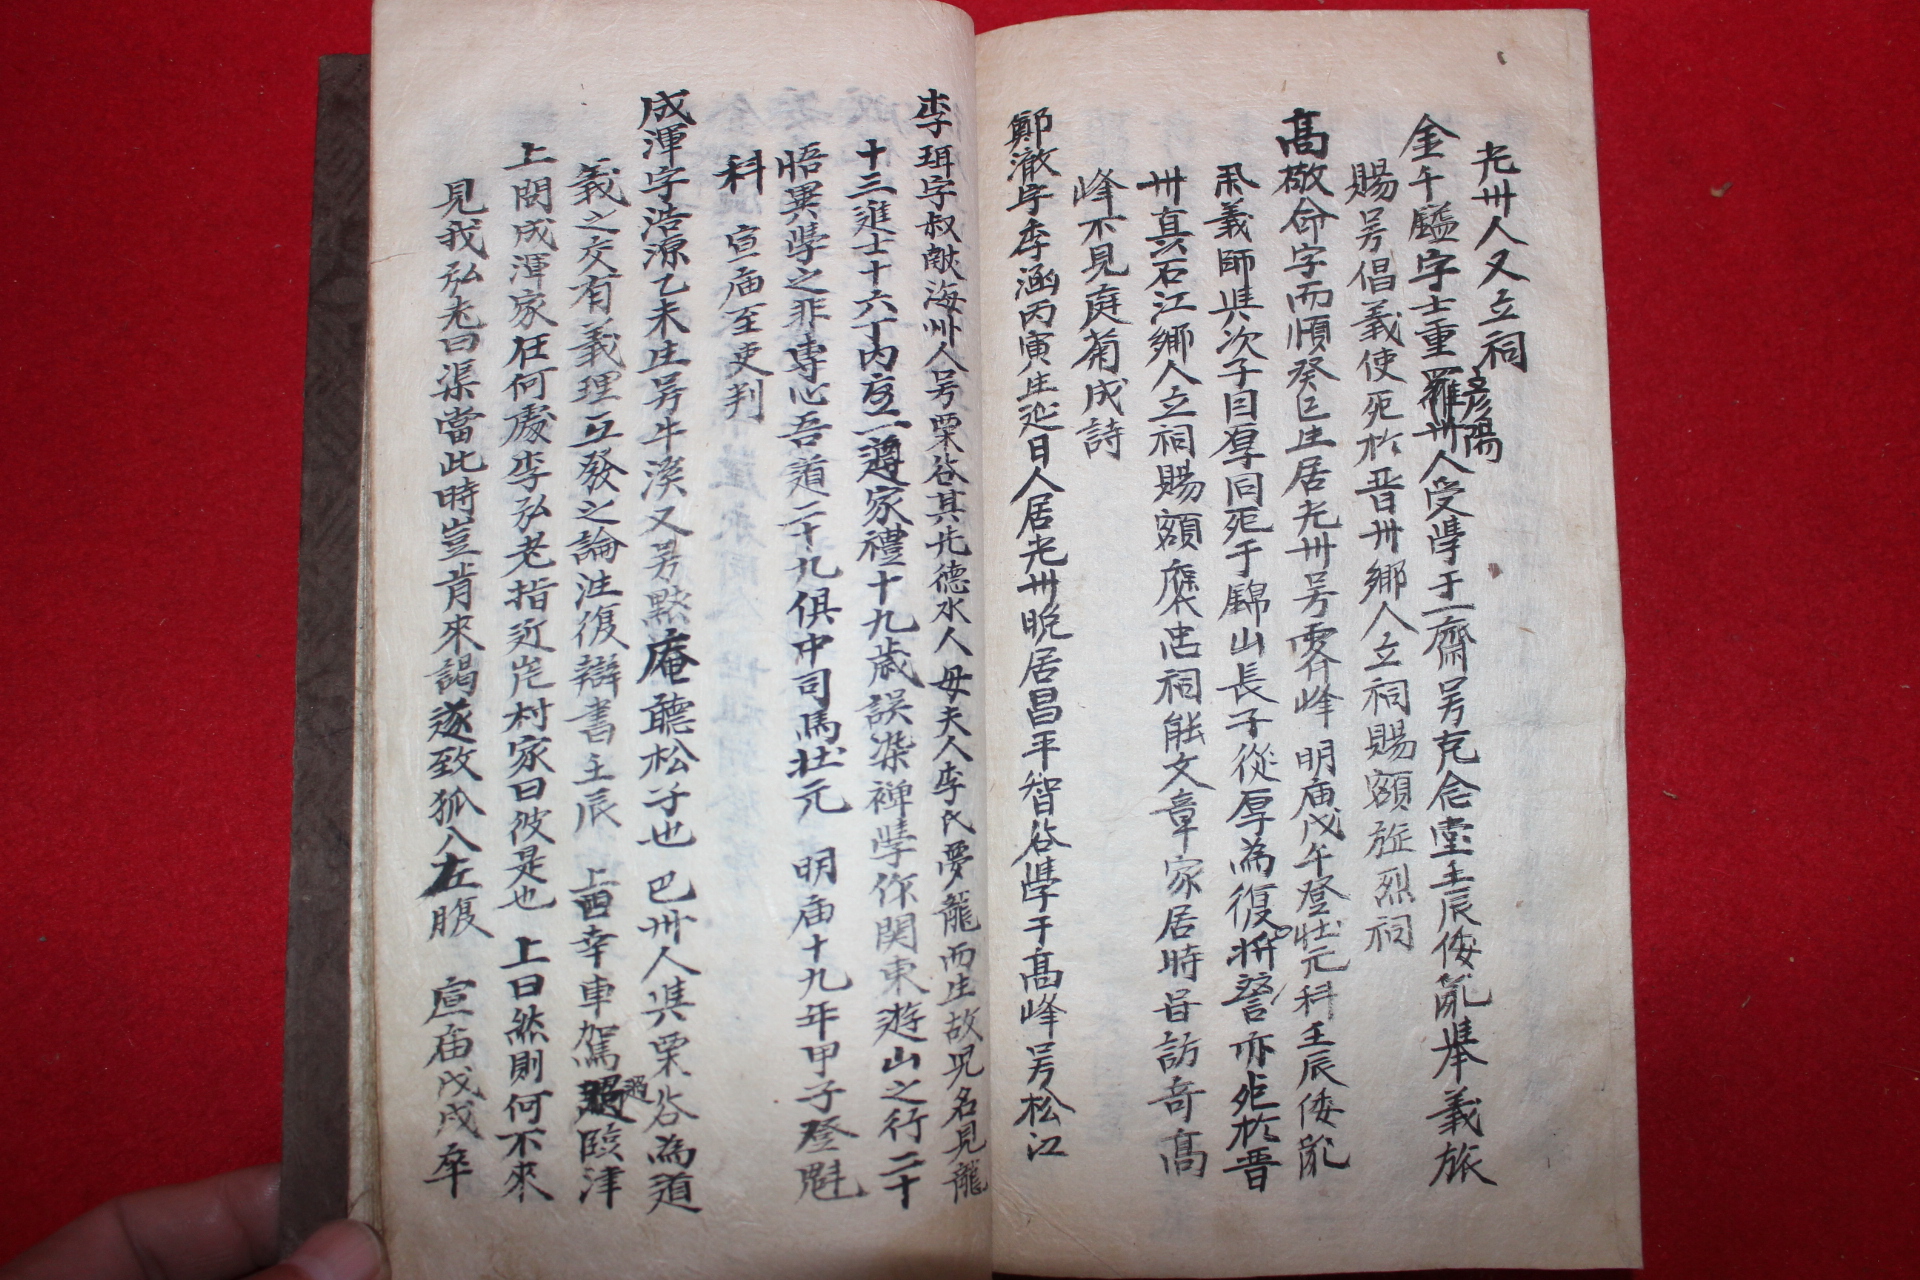 光州人又立祠
金千鎰字士重羅州人受學于一齋号克念堂壬辰倭亂擧義旅
彦陽
賜号倡義使死於晋州鄉人立祠賜額旌烈祠
高敬命字而順癸巳生居光州号霽峰 明庙戊午登壮元科壬辰倭亂
義師與次子因厚同死于錦山長子從厚為復將誓亦死於晋
州真石江鄉人立祠賜額褒忠祠能文章家居時昔訪奇高
峰不見庭菊成詩
鄭澈字季涵丙寅生延日人居光州晚居昌平智谷學于高峰号松江
李珥字叔献海州人号栗谷其先德水人母夫人李氏夢龍而生故兒名見龍
十三進士十六丁内㤙一遵家禮十九歲誤染禅學作関東遊山之行二十
悟異學之非專心吾道二十九俱中司馬壮元 明庙十九年甲子登魁
科 宣庙至吏判
成渾字浩源乙未生号牛溪又号黙庵聽松子也 巴州人與栗谷為道
義之交有義理互發之論注復辯書壬辰 上西幸車駕過臨津
過
上問成渾家在何處李弘老指近岸村家曰彼是也 上曰然則何不來
見我弘老曰渠當此時豈肯來謁遂致狐入左腹 宣庙戊戌卒